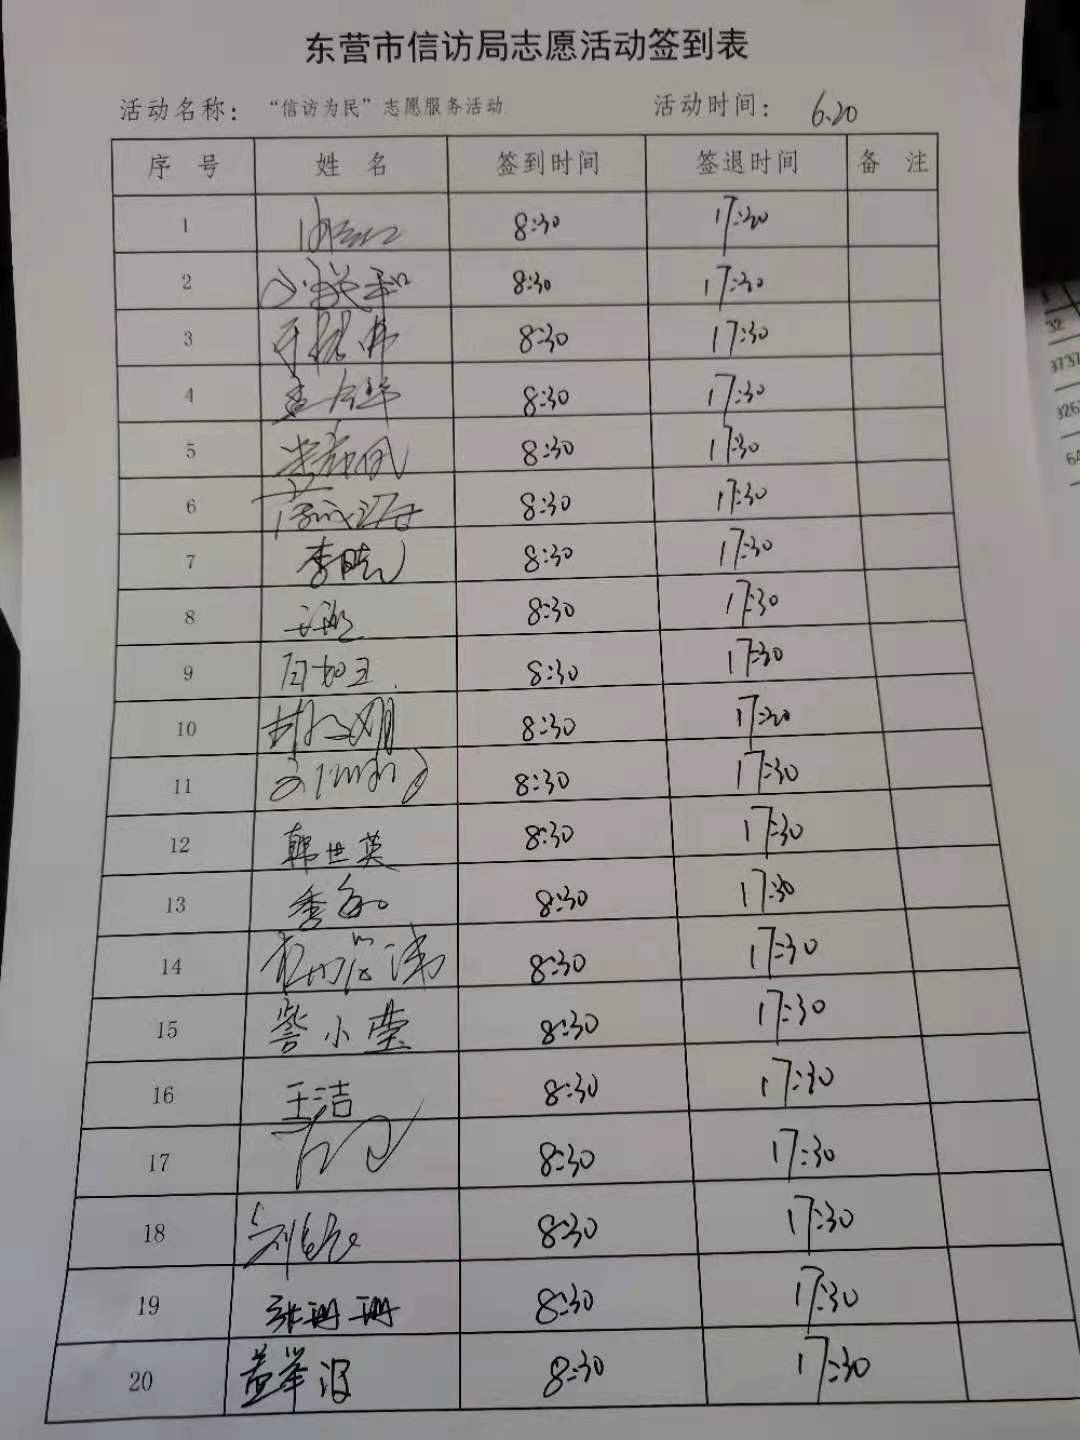 东营市信访局志愿活动签到表
活动名称： “信访为民”志愿服务活动 活动时间： 6.20
序 号 姓 名 签到时间 签退时间 备 注
1 8:30 17:30
2 8:30 17:30
3 8:30 17:30
4 8:30 17:30
5 8:30 17:30
6 8:30 17:30
7 李晓 8:30 17:30
8 8:30 17:30
9 8:30 17:30
10 8:30 17:30
11 8:30 17:30
12 韩世英 8:30 17:30
13 季敏 8:30 17:30
14 8:30 17:30
15 訾小莹 8:30 17:30
16 王洁 8:30 17:30
17 8:30 17:30
18 8:30 17:30
19 张珊珊 8:30 17:30
20 盖举波 8:30 17:30
32